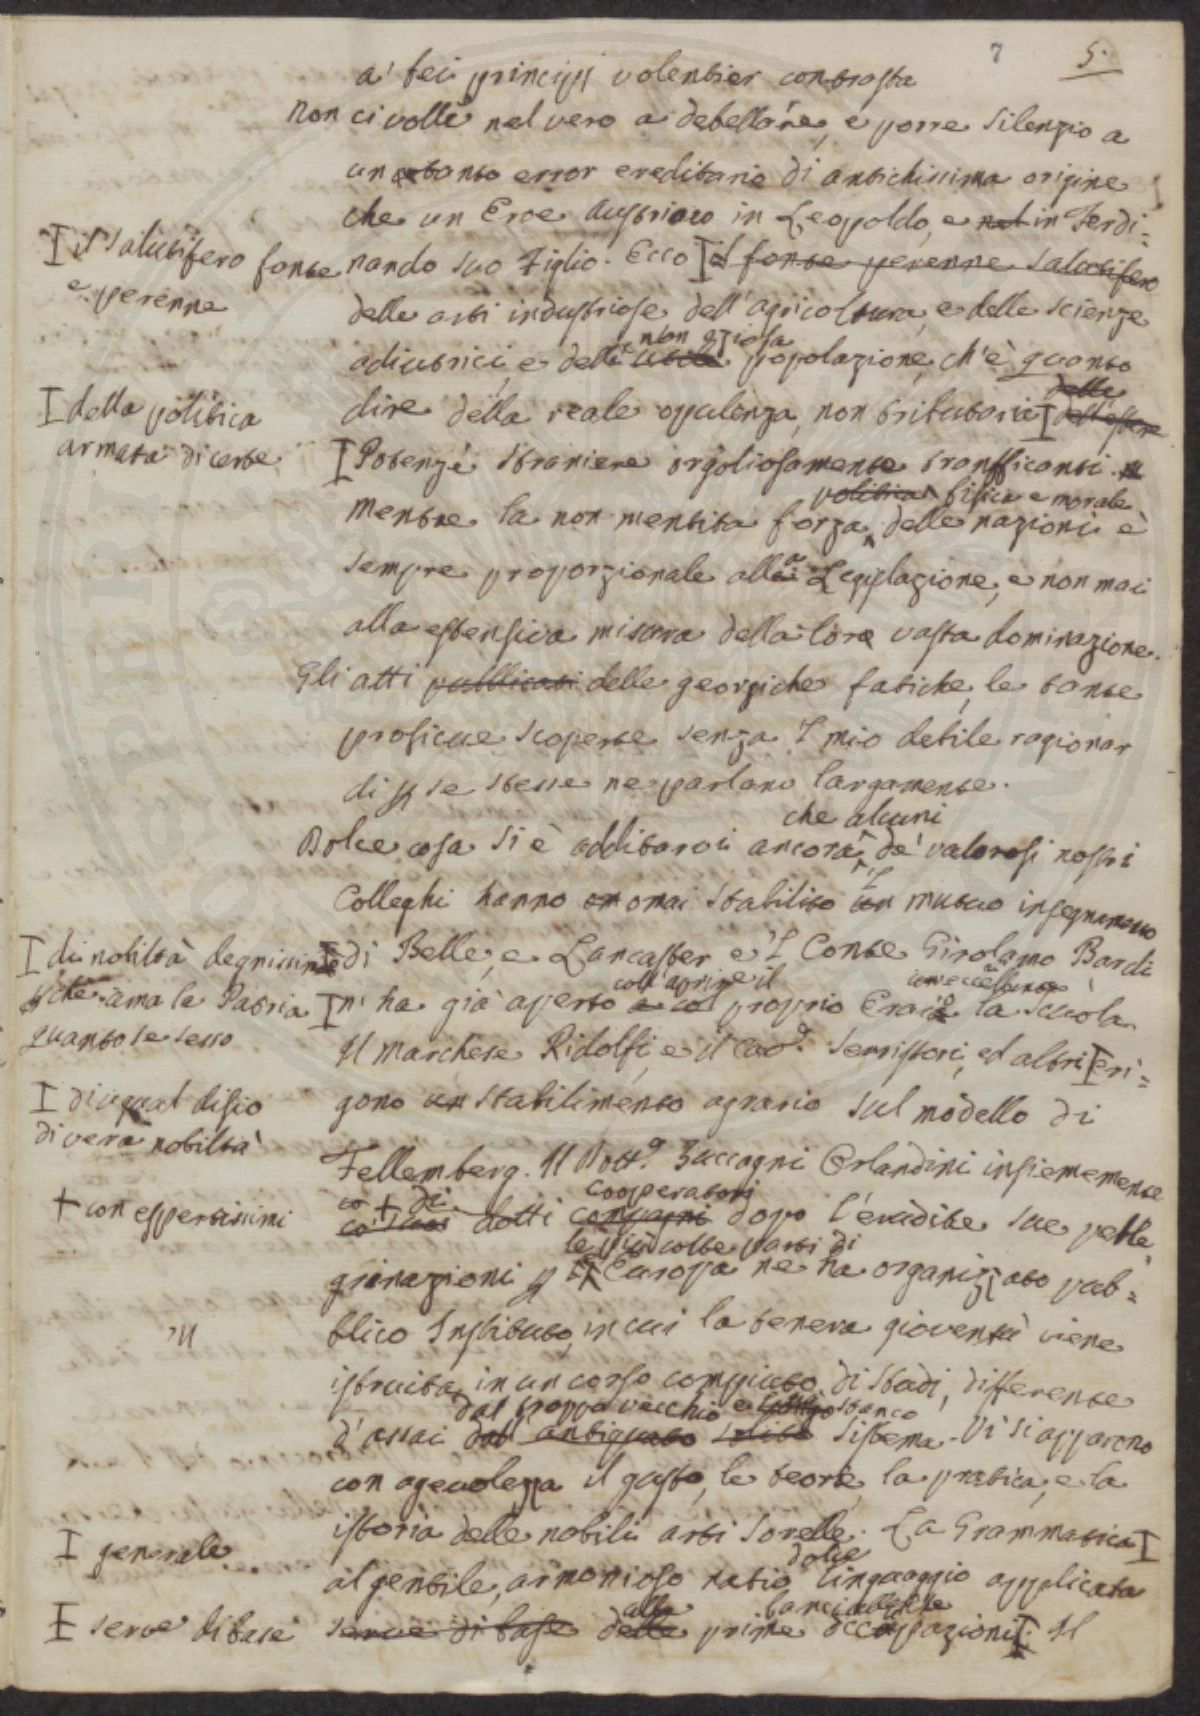 7 5.
a' bei principj volentier contrasta
Non ci volle nel vero a debellare, e porre silenzio a
un tanto error ereditario di antichissima origine
che un Eroe Austriaco in Leopoldo, e nel in Ferdi=
I il salutifero fonte
e perenne
nando suo Figlio. Ecco I il fonte perenne salutifero
delle arti industriose dell'agricoltura, e delle scienze
non oziosa
adiutrici, e della utile popolazione, ch'è quanto
I della politica
armata di certe
delle
dire della reale opulenza, non tributaria I dell'estere
I Potenze straniere orgoliosamente trafficanti.
politica fisica e morale
mentre la non mentita forza delle nazioni è
sempre proporzionale alla Legislazione, e non mai
alla estensiva misura della loro vasta dominazione.
Gli atti pubblicati delle georgiche fatiche, le tante
proficue scoperte senza 'l mio debile ragionar
di se stesse ne parlano largamente.
che alcuni
Dolce cosa si è additarvi ancora, da' valorosi nostri
'l
Colleghi hanno omai stabilito un mutuo insegnamento
I di nobiltà degnissimo
che ama la Patria
quanto se stesso
I di Belle, e Lancaster e 'l Conte Girolamo Bardi
coll'aprire il
I n' ha già aperto a col proprio Erario la scuola
Il Marchese Ridolfi, e il Cav.e Serristori, ed altri I eri=
I di ugual disio
di vera nobiltà
gono un stabilimento agrario sul modello di
Fellemberg. Il Dott.e Zuccagni Orlandini insiememente
+ con espertissimi
co + di cooperatori
co' suoi dotti compagni dopo l'erudite sue pelle
le più colte parti di
grinazioni Europa ne ha organizzato pub=
blico Instituto, in cui la tenera gioventù viene
istruita in un corso compiuto di studi, differente
dal troppo vecchio e stanco
d'assai dal' antiquato solito sistema. Vi si apparono
con agevolezza il gusto, le teorie, la pratica, e la
istoria delle nobili arti sorelle. La Grammatica I
I generale
dolce
al gentile, armonioso natio linguaggio applicata
I serve di base
alle
serve di base delle prime occupazioni I. Il